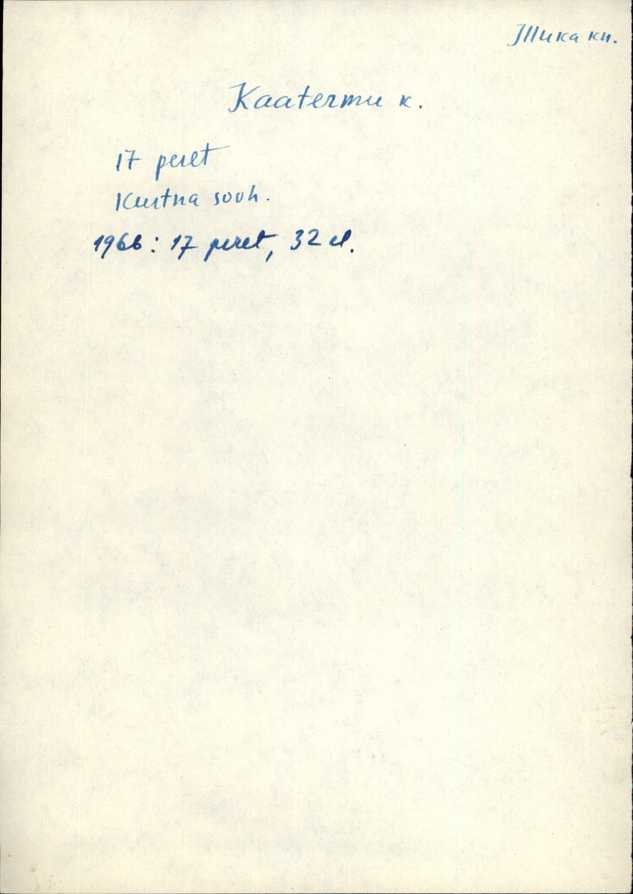 Illuka kn.
Kaatermu k.
17 peret
Kurtna sovh.
1966: 17 peret, 32 el.